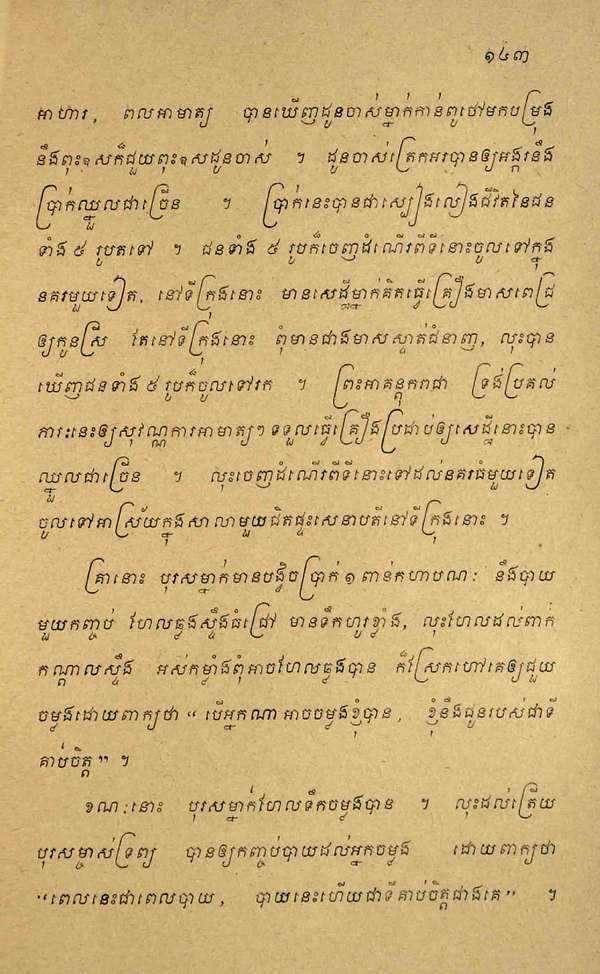 ១៤៣
អាហារ, ពលអាមាត្យ បានឃើញដូនចាស់ម្នាក់កាន់ពូថៅមកបម្រុង
នឹងពុះឧសក៏ជួយពុះឧសដូនចាស់ ។ ដូនចាស់ត្រេកអរបានឲ្យអង្ករនឹង
ប្រាក់ឈ្នួលជាច្រើន ។ ប្រាក់នេះបានជាស្បៀងលៀងជីវិតនៃជន
ទាំង ៥ រូបតទៅ ។ ជនទាំង ៥ រូបក៏ចេញដំណើរពីទីនោះចូលទៅក្នុង
នគរមួយទៀត, នៅទីក្រុងនោះ មានសេដ្ឋីម្នាក់គិតធ្វើគ្រឿងមាសពេជ្រ
ឲ្យកូនស្រី តែនៅទីក្រុងនោះ ពុំមានជាងមាសស្ទាត់ជំនាញ, លុះបាន
ឃើញជនទាំង ៥ រូបក៏ចូលទៅរក ។ ព្រះអាគន្តុករាជា ទ្រង់ប្រគល់
ភារៈនេះឲ្យសុវណ្ណការអាមាត្យៗ ទទួលធ្វើគ្រឿងប្រដាប់ឲ្យសេដ្ឋីនោះបាន
ឈ្នួលជាច្រើន ។ លុះចេញដំណើរពីទីនោះទៅដល់នគរធំមួយទៀត
ចូលទៅអាស្រ័យក្នុងសាលាមួយជិតផ្ទះសេនាបតីនៅទីក្រុងនោះ ។
គ្រានោះ បុរសម្នាក់មានបង្វិចប្រាក់ ១ ពាន់កហាបណៈ នឹងបាយ
មួយកញ្ចប់ ហែលឆ្លងស្ទឹងធំជ្រៅ មានទឹកហូរខ្លាំង, លុះហែលដល់ពាក់
កណ្ដាលស្ទឹង អស់កម្លាំងពុំអាចហែលឆ្លងបាន ក៏ស្រែកហៅគេឲ្យជួយ
ចម្លងដោយពាក្យថា “ បើអ្នកណាអាចចម្លងខ្ញុំបាន, ខ្ញុំនឹងជូនរបស់ជាទី
គាប់ចិត្ត ” ។
ខណៈនោះ បុរសម្នាក់ហែលទឹកចម្លងបាន ។ លុះដល់ត្រើយ
បុរសម្ចាស់ទ្រព្យ បានឲ្យកញ្ចប់បាយដល់អ្នកចម្លង ដោយពាក្យថា
“ពេលនេះជាពេលបាយ, បាយនេះហើយជាទីគាប់ចិត្តជាងគេ” ។